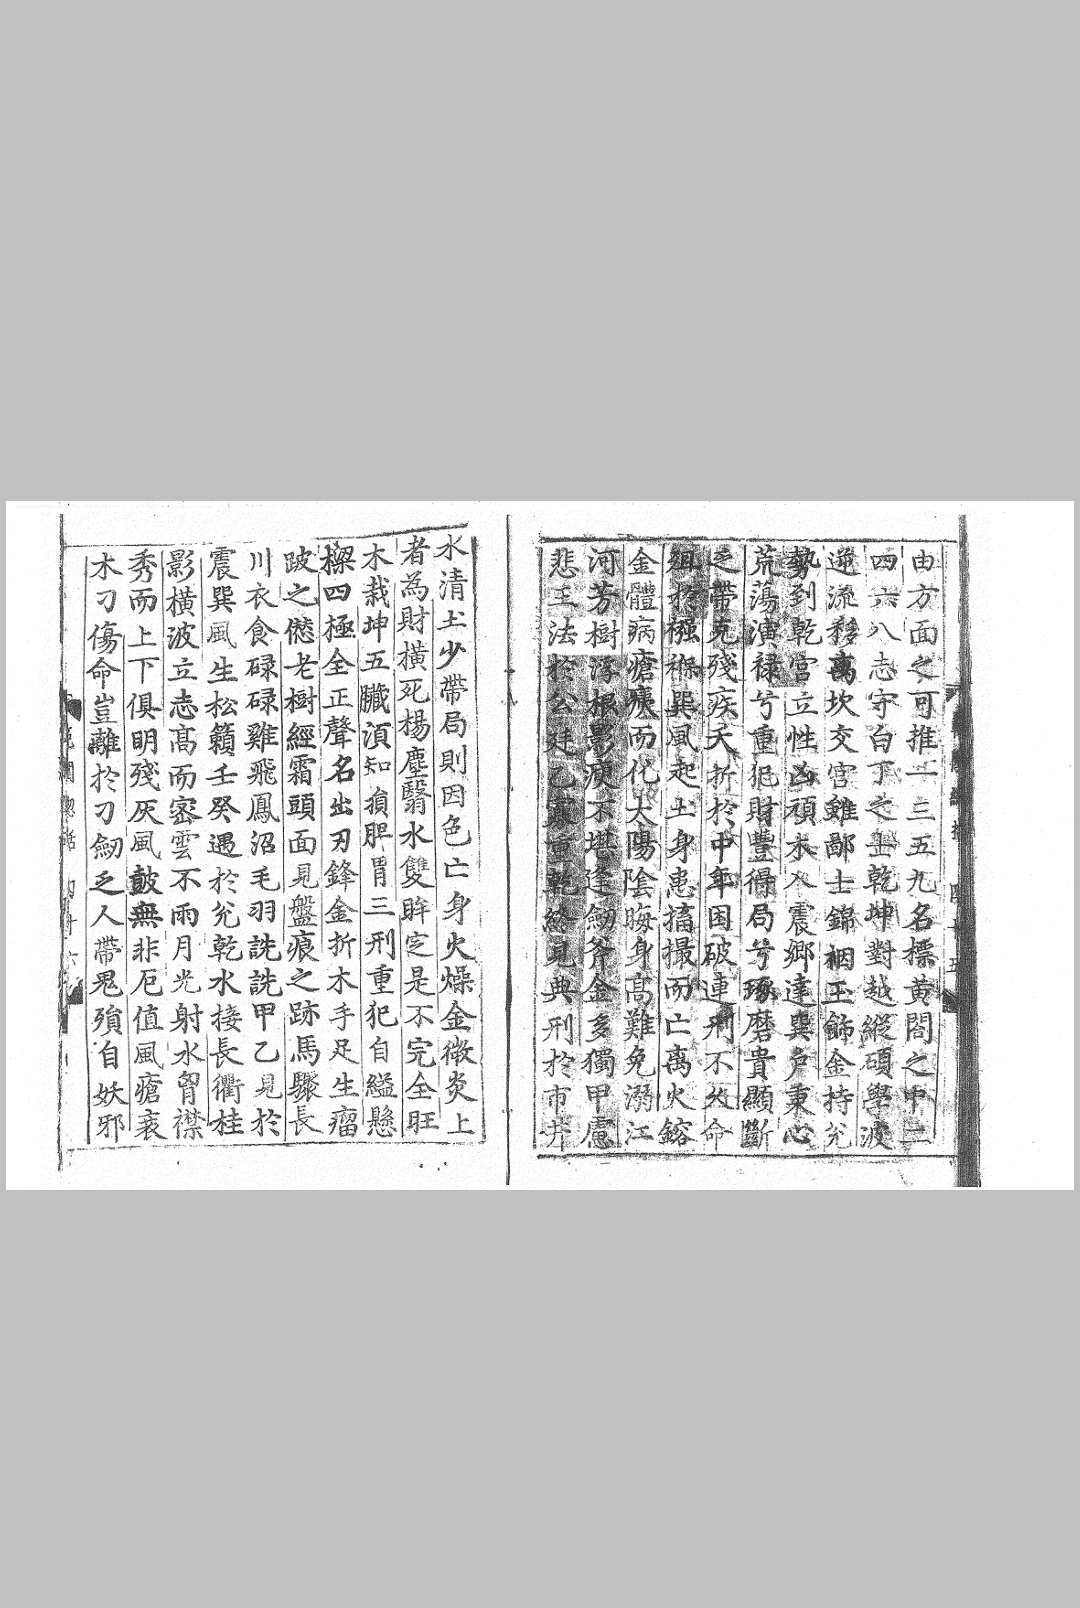 由方面之可推一三五九名標黃閤之中二
四六八志守白丁之士乾坤對越縱碩學波
逆流移离坎交宮雖鄙士錦裀玉飾金持兊
勢到乾宮立性凶頑木入震鄉達巽戶秉心
荒蕩演祿兮重犯財豐得局兮琢磨貴顯斷
之帶克殘疾夭折於中年困破連刑不攸命
殂於襁褓巽風起土身患搐撮而亡离火鎔
金體病瘡痍而化太陽陰晦身高難免溺江
河芳樹浮根影瘐不堪逢劒斧金多獨甲慮
悲王法於公廷乙寡重乾終見典刑於市井
水清土少帶局則因色亡身火燥金微炎上
者為財橫死楊塵翳水雙眸定是不完全旺
木栽坤五臟須知損脾胃三刑重犯自縊懸
樑四極全正聲名出刃鋒金折木手足生瘤
跛之僽老樹經霜頭面見盤痕之跡馬驟長
川衣食碌碌雞飛鳳沼毛羽詵詵甲乙見於
震巽風生松籟壬癸遇於兊乾水接長衢桂
影橫波立志高而密雲不雨月光射水胷襟
秀而上下俱明殘灰風皷無非厄值風瘡衰
木刀傷命豈離於刀劒乏人帶鬼殞自妖邪